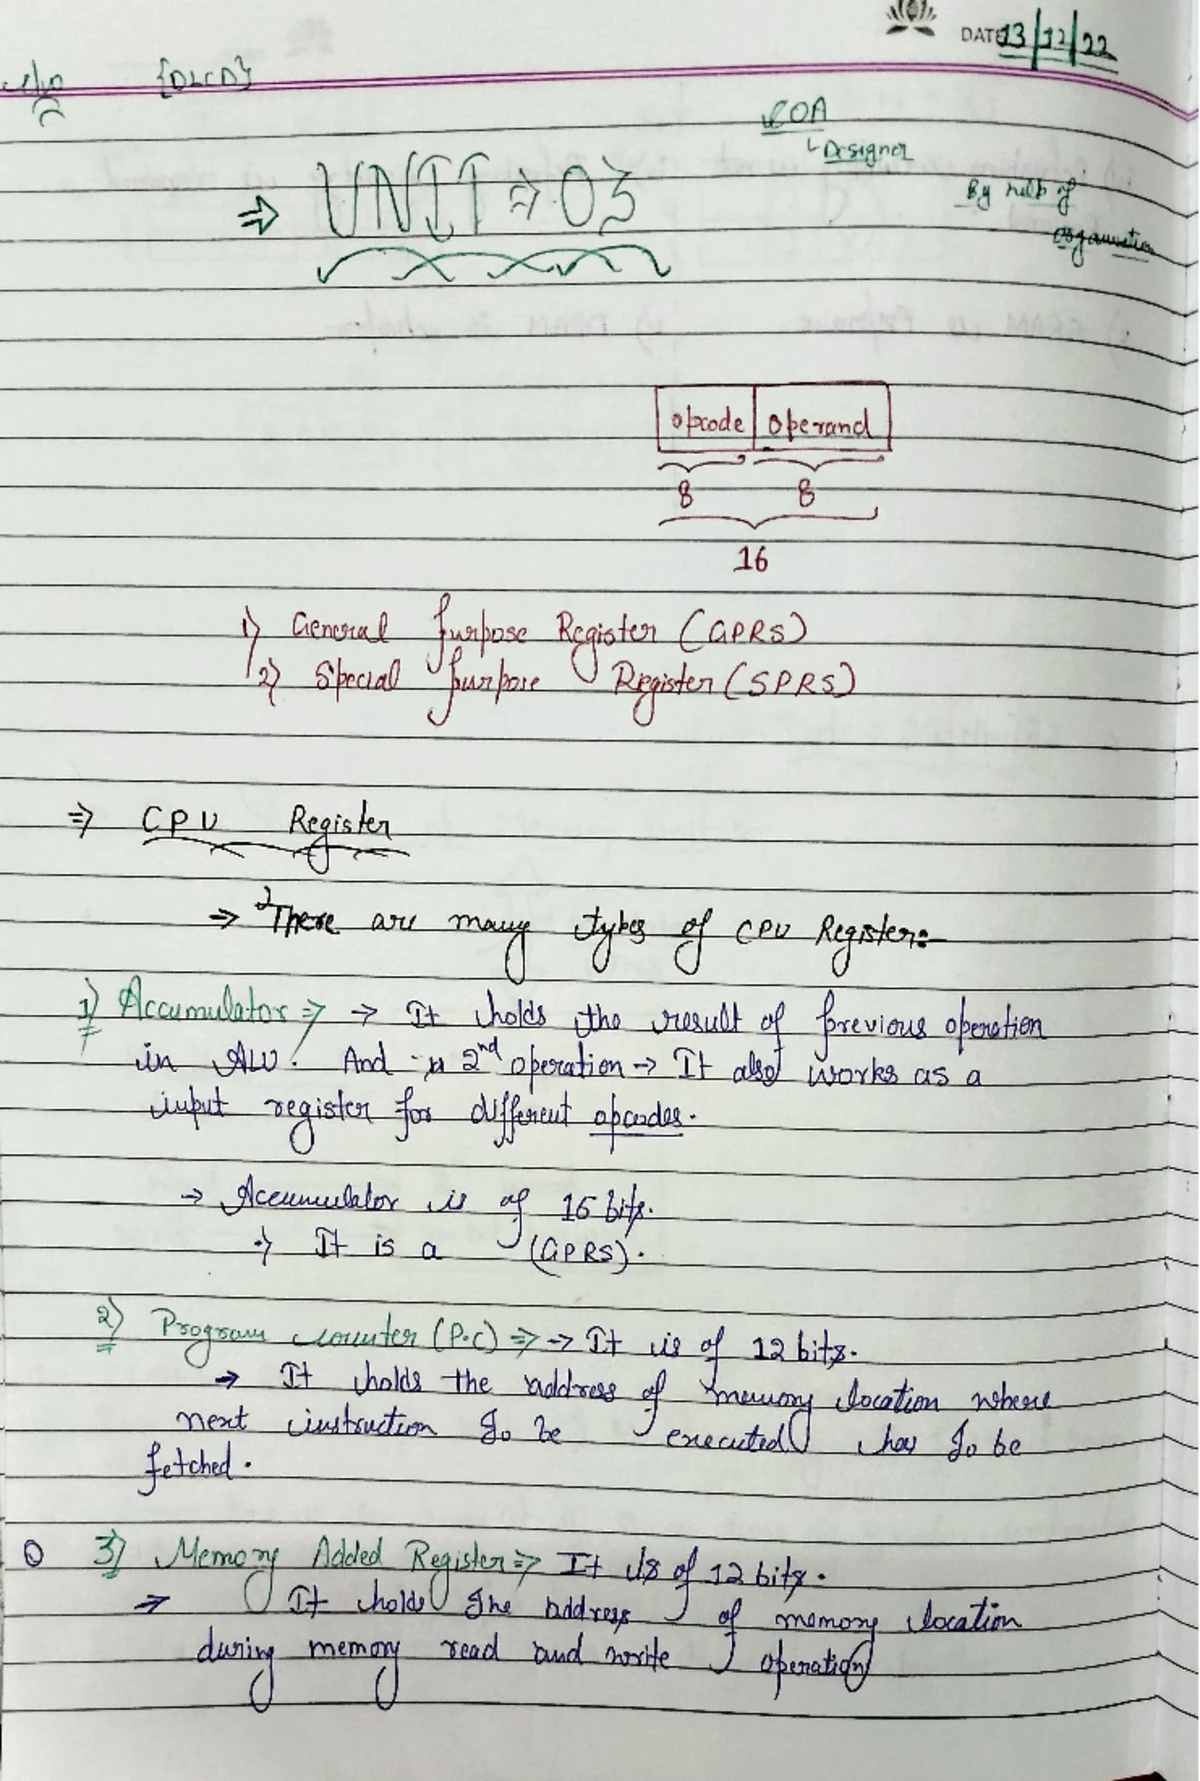 DATE 13/12/22
{DLCD}
COA
Designer
⇒ UNIT ⇒ 03
By help of
organisation
opcode operand
8 8
16
1) General Purpose Register (GPRS)
2) Special Purpose Register (SPRS)
⇒ CPU Register
→ There are many types of CPU Register:-
1) Accumulator ⇒ → It holds the result of previous operation
in ALU. And 2nd operation → It also works as a
input register for different opcodes.
→ Accumulator is of 16 bits.
→ It is a (GPRS).
2) Program counter (P.C) ⇒ → It is of 12 bits.
→ It holds the address of memory location where
next instruction to be executed has to be
fetched.
3) Memory Added Register ⇒ It is of 12 bits.
→ It holds the address of memory location
during memory read and write operation